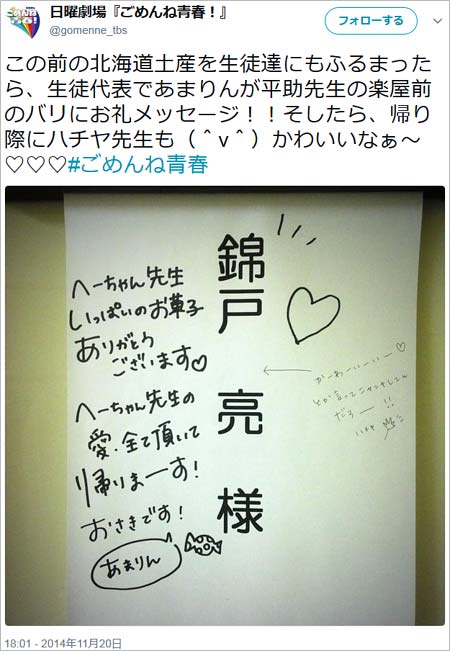 日曜劇場『ごめんね青春！』
@gomenne_tbs
フォローする
この前の北海道土産を生徒達にもふるまった
ら、生徒代表であまりんが平助先生の楽屋前
のバリにお礼メッセージ！！そしたら、帰り
際にハチヤ先生も（＾ｖ＾）かわいいなぁ～
♡♡♡#ごめんね青春
錦戸 亮 様
へーちゃん先生
いっぱいのお菓子
ありがとう
ございます♡
へーちゃん先生の
愛、全て頂いて
帰りまーす！
おさきです！
あまりん
かーわーいーいー♡
とか言ってニヤニヤしてん
だろー!!
ハチヤ
18:01 - 2014年11月20日